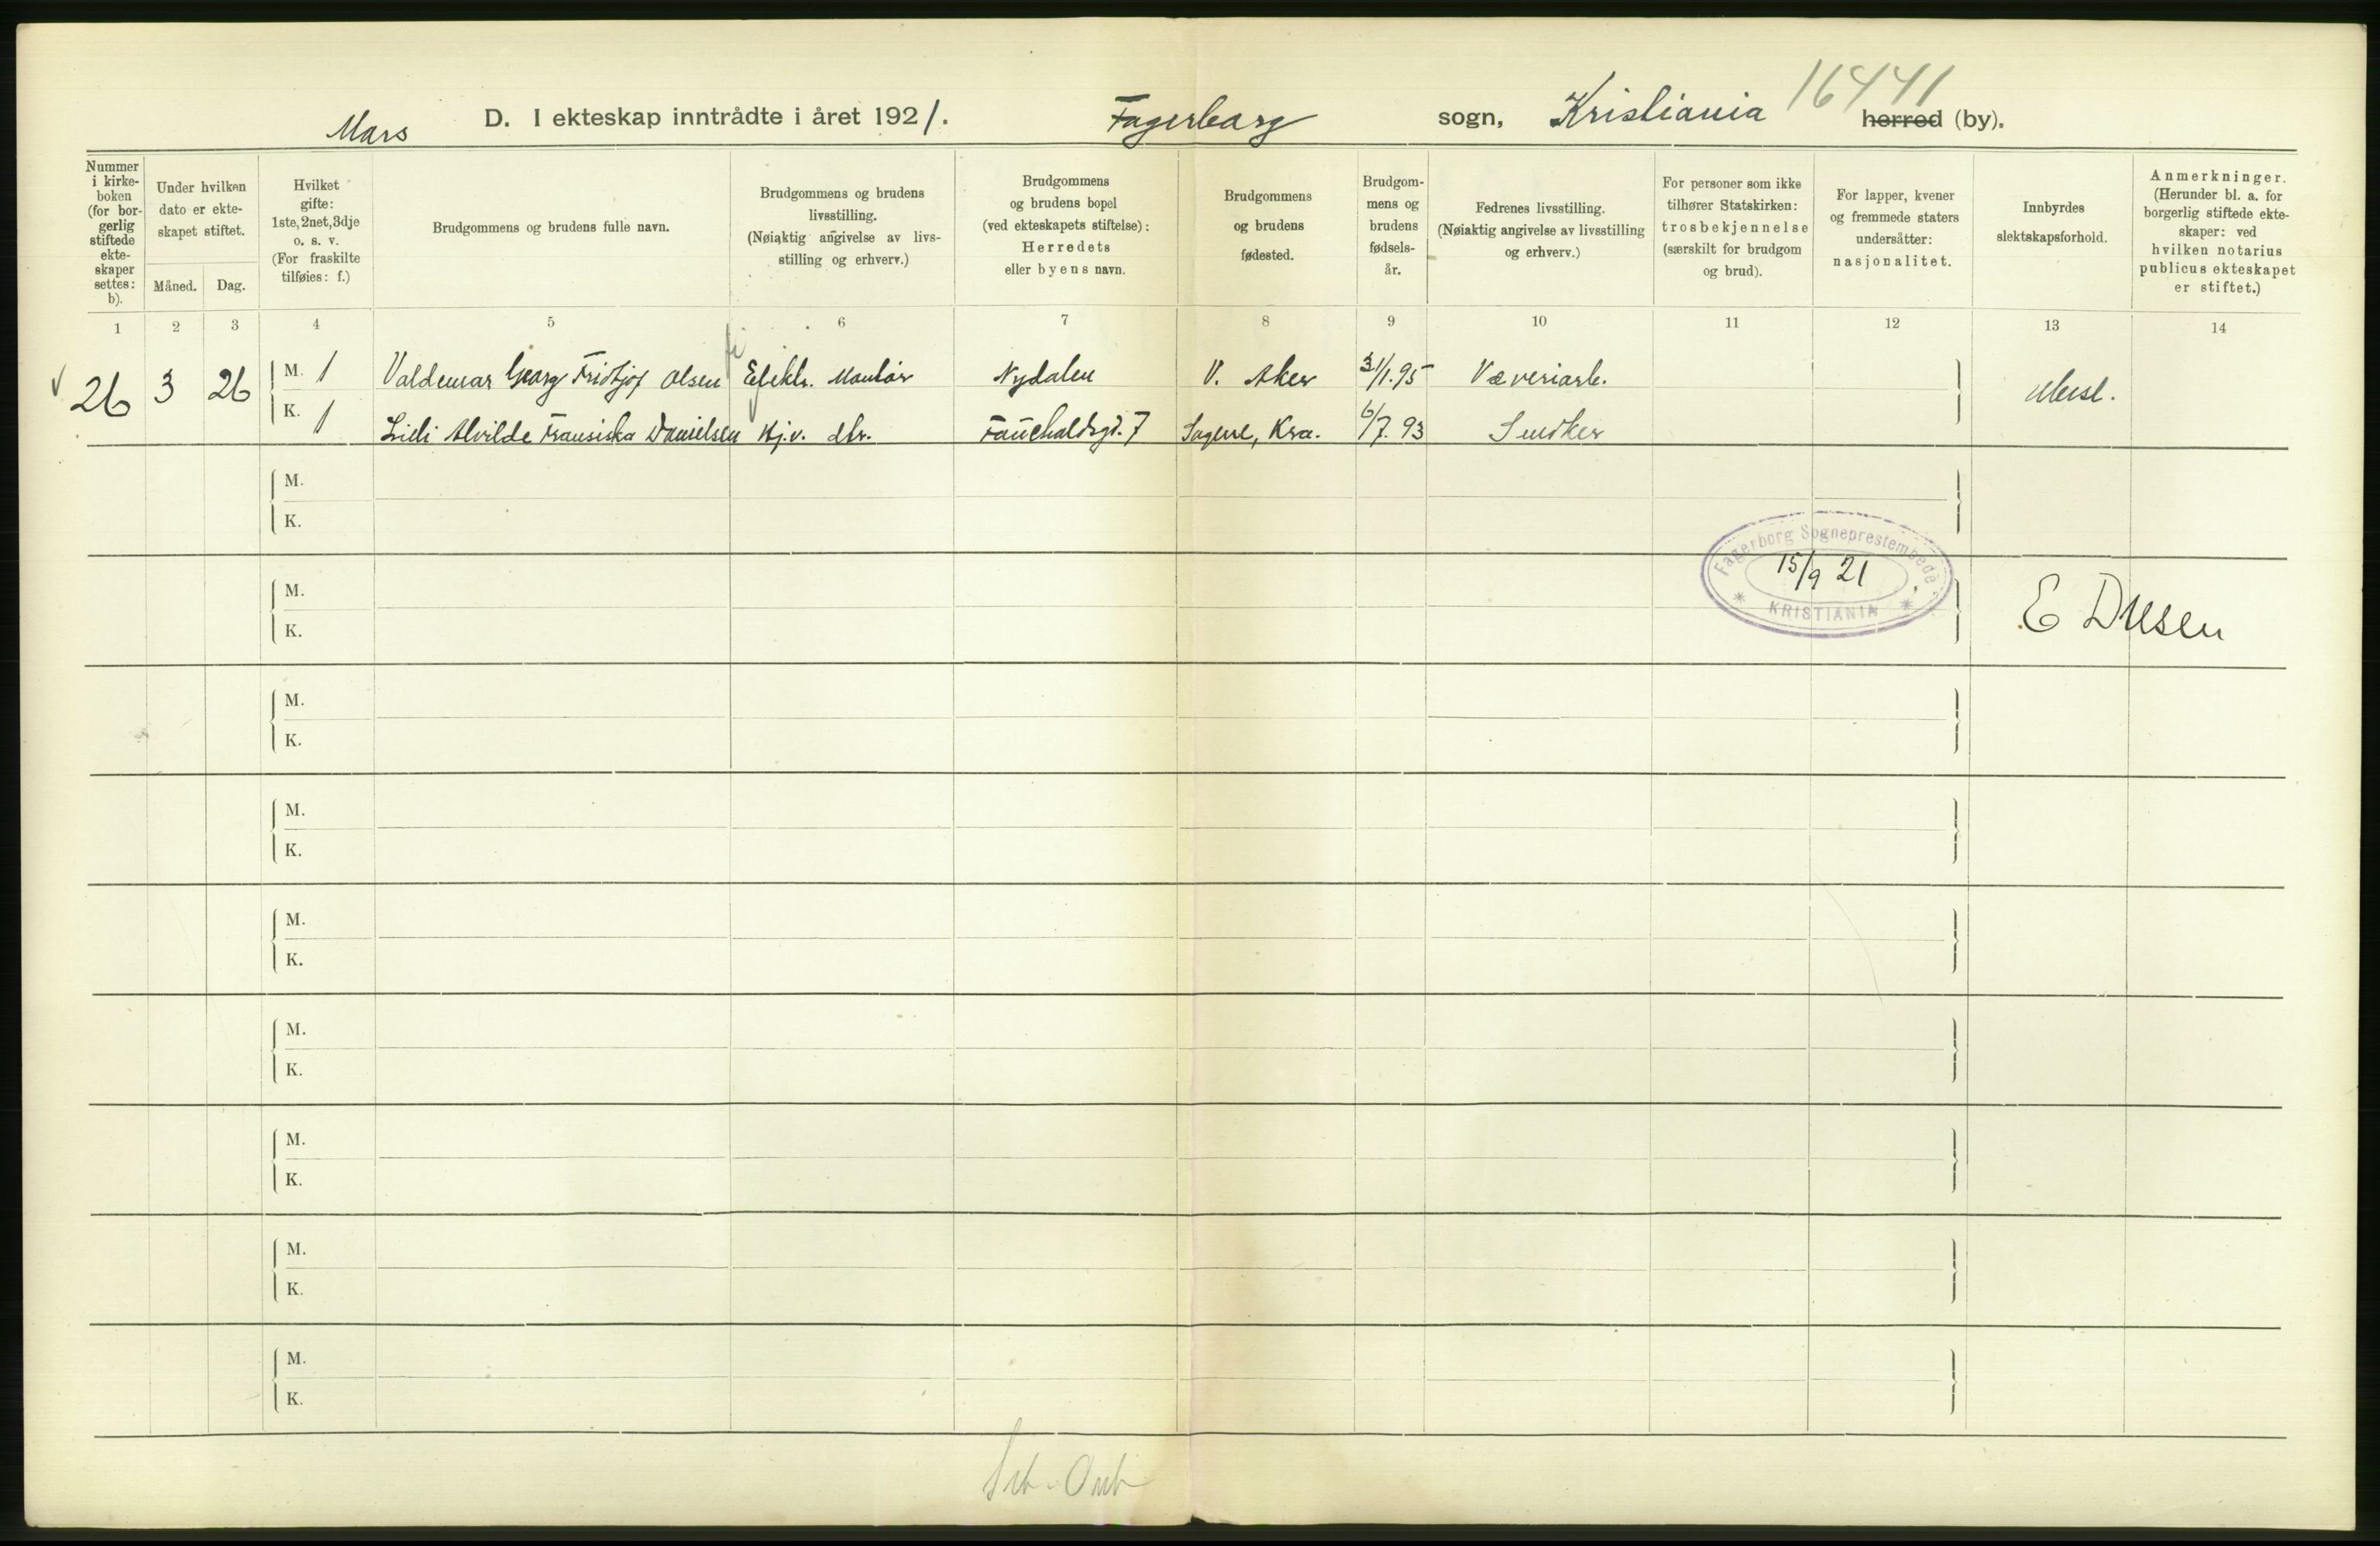 16441
Mars D. I ekteskap inntrådte i året 1921. Fagerborg sogn, Kristiania herred (by).
Nummer i kirke-boken (for bor-gerlig stiftede ekte-skaper settes: b).
Under hvilken dato er ekte-skapet stiftet.
Måned. Dag.
Hvilket gifte: 1ste, 2net, 3dje o. s. v. (For fraskilte tilføies: f.)
Brudgommens og brudens fulle navn.
Brudgommens og brudens livsstilling. (Nøiaktig angivelse av livs-stilling og erhverv.)
Brudgommens og brudens bopel (ved ekteskapets stiftelse): Herredets eller byens navn.
Brudgommens og brudens fødested.
Brudgom-mens og brudens fødsels-år.
Fedrenes livsstilling. (Nøiaktig angivelse av livsstilling og erhverv.)
For personer som ikke tilhører Statskirken: trosbekjennelse (særskilt for brudgom og brud).
For lapper, kvener og fremmede staters undersåtter: nasjonalitet.
Innbyrdes slektskapsforhold.
Anmerkninger. (Herunder bl. a. for borgerlig stiftede ekte-skaper: ved hvilken notarius publicus ekteskapet er stiftet.)
1 2 3 4 5 6 7 8 9 10 11 12 13 14
26 3 26 M. 1 Valdemar Georg Fridtjof Olsen Elektr. Montør Nydalen V. Aker 31/1.95 Væveriarb. Ubesl.
K. 1 Lilli Alvilde Fransiska Danielsen Hj.v. dtr. Fauchaldsgt. 7 Sagene, Kra. 6/7.93 Snedker
M.
K.
Fagerborg Sogneprestembede
15/9 21
KRISTIANIA
M.
K.
M.
K.
M.
K.
M.
K.
M.
K.
M.
K.
M.
K.
M.
K.